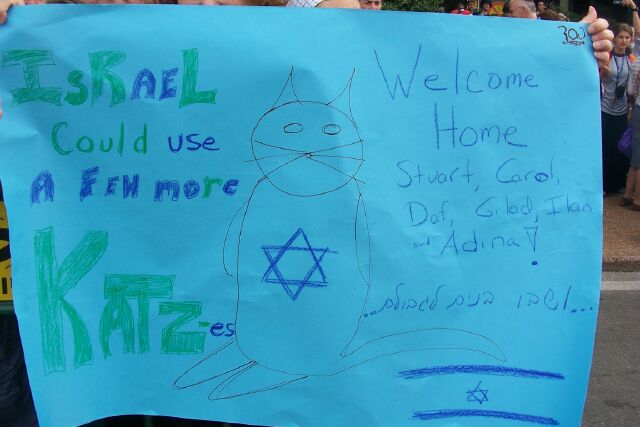 IsRAEL
Could use
A FEW more
KATZ-es
Welcome
Home
Stuart, Carol,
Daf, Gilad, Ilan
and Adina!
...ושבו בנים לגבולם...